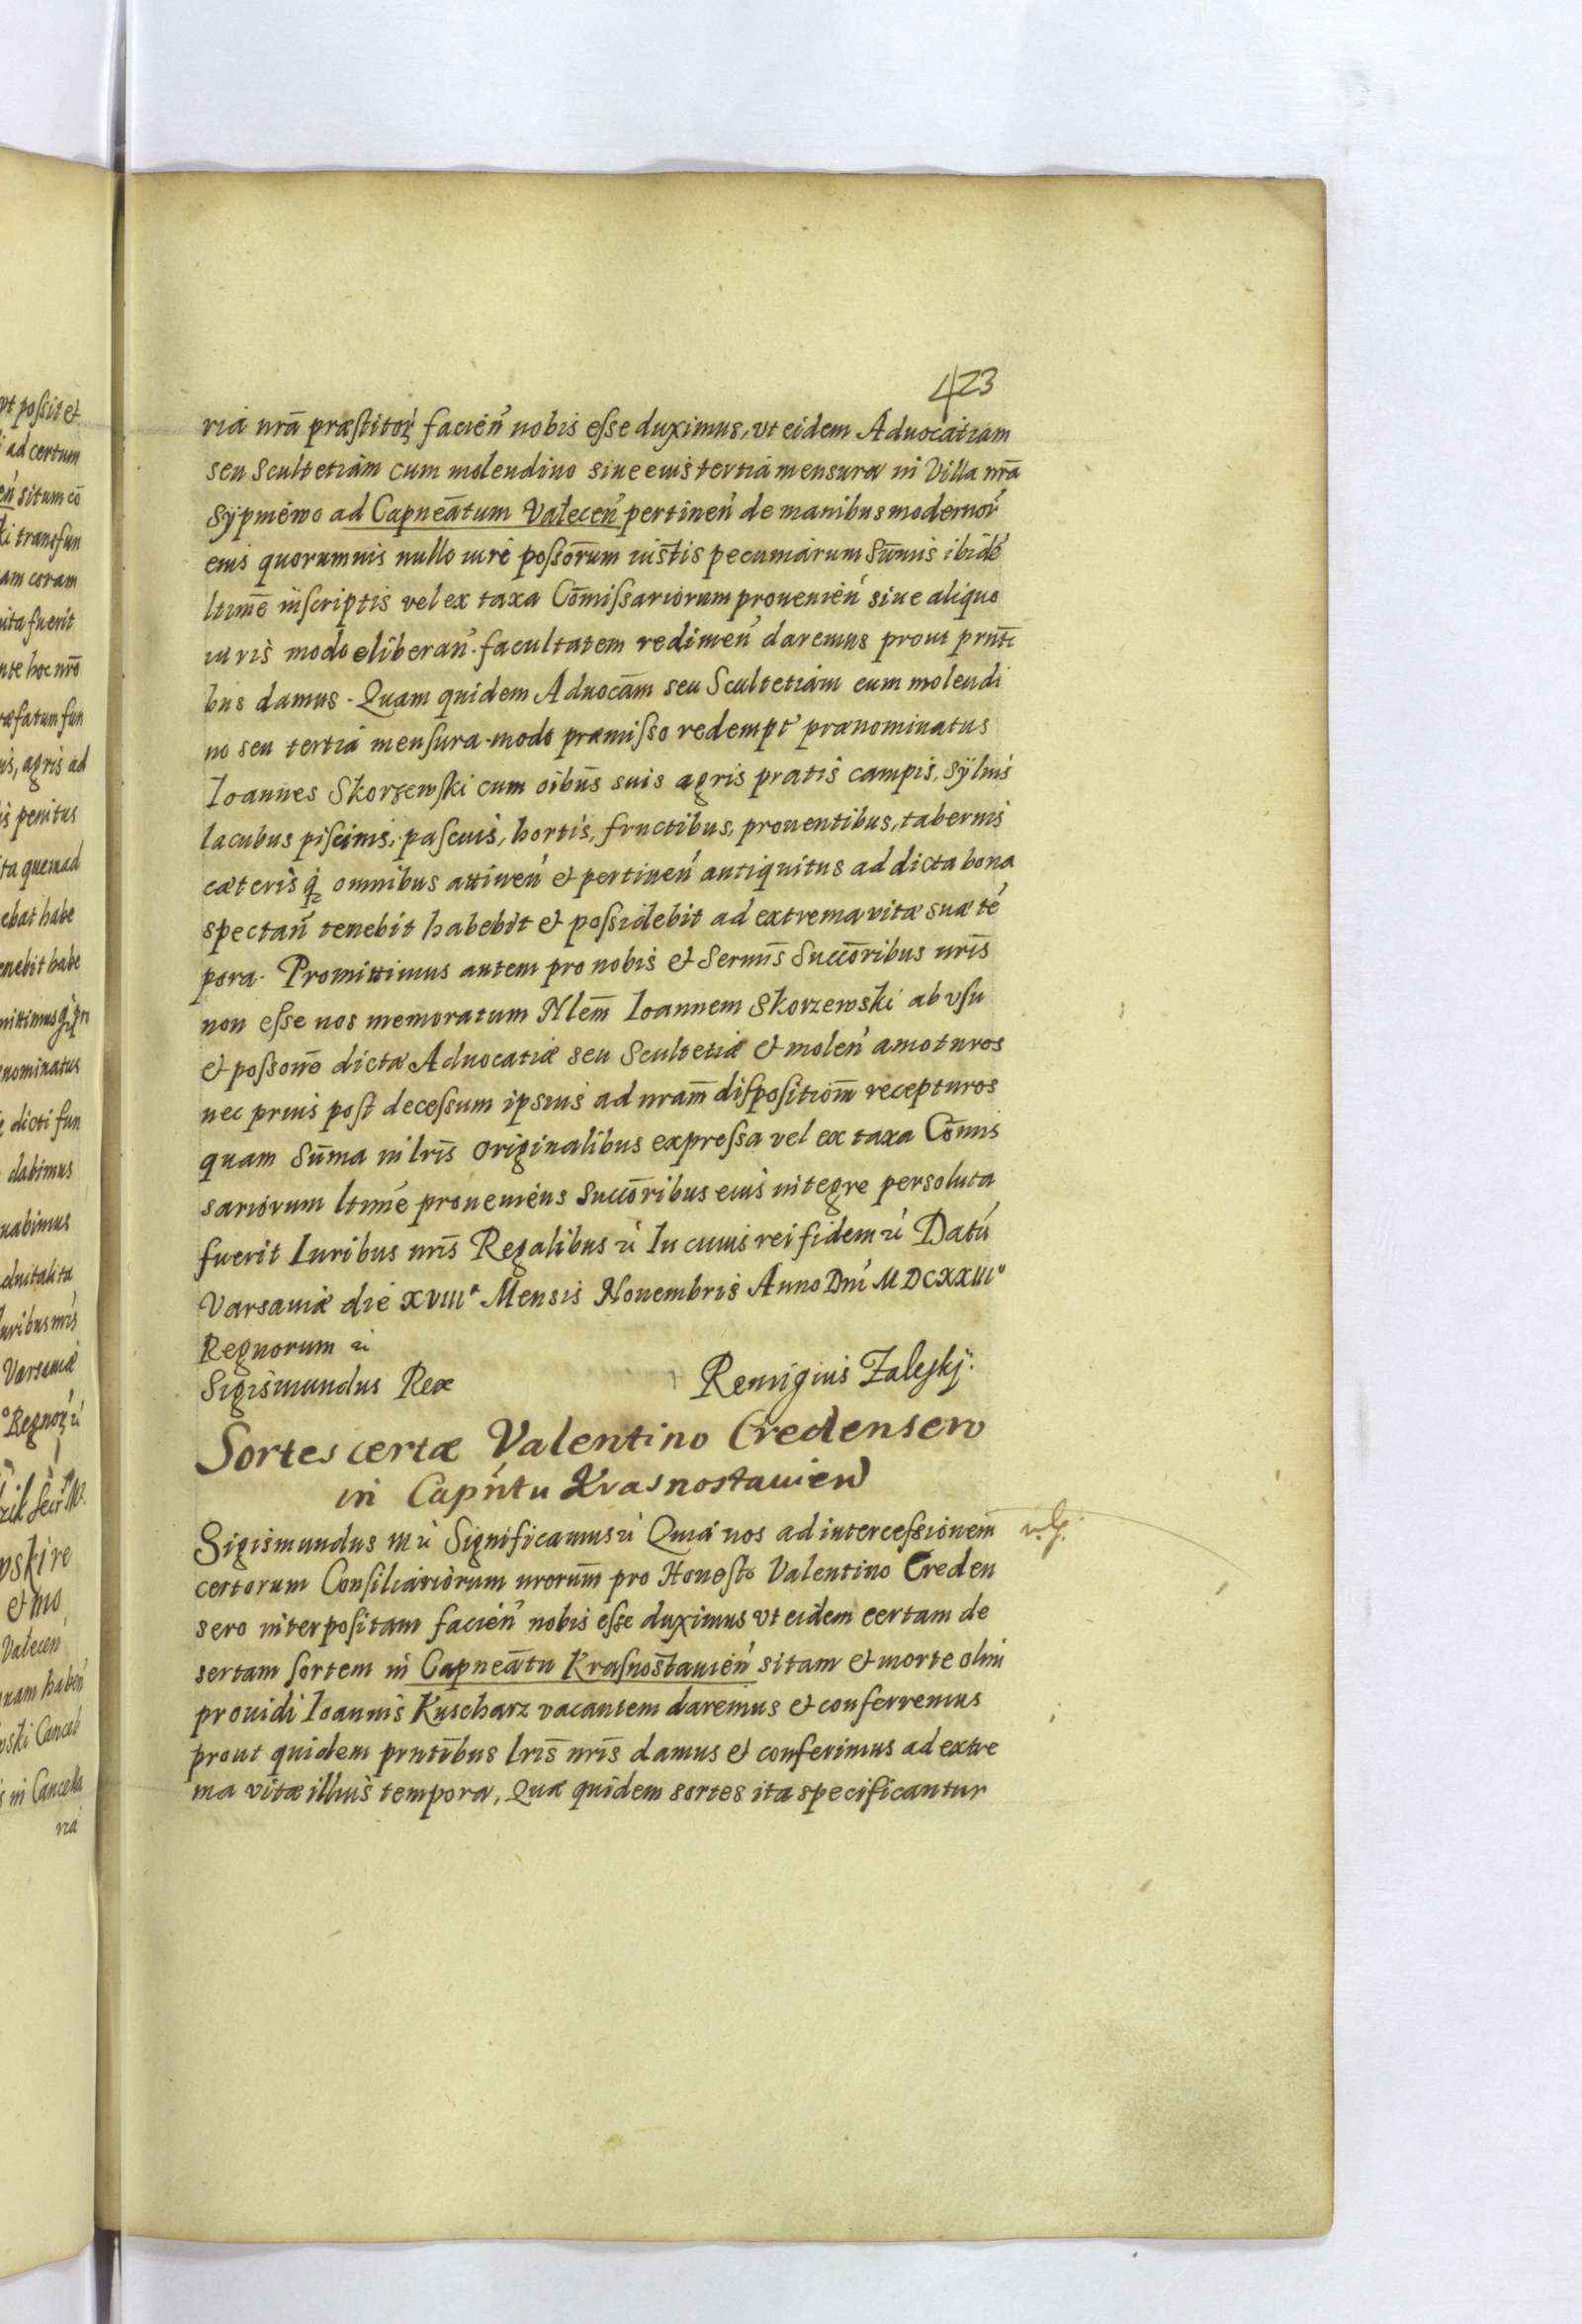 423
ria nrã præstitoꝝ facien̄ nobis esse duximus, vt eidem Aduocatiam
seu Scultetiam cum molendino siue eius tertia mensura in Villa nrã
Sypniewo ad Capneātum Valecen̄ pertinen̄ de manibus modernor̄
eius quorumuis nullo iure possor̄um iustis pecuniarum Sum̄is ibidē
ltimē inscriptis vel ex taxa Com̄issariorum prouenien̄ siue aliquo
iuris modo eliberan̄. facultatem redimen̄ daremus prout prn̄ti
bus damus. Quam quidem Aduocām seu Scultetiam cum molendi
no seu tertia mensura modo præmisso redempt̄ prænominatus
Ioannes Skorzewski cum oibūs suis agris pratis campis, sÿluis
lacubus piscinis, pascuis, hortis, fructibus, prouentibus, tabernis
cæterisq̨ omnibus attinen̄ et pertinen̄ antiquitus ad dicta bona
spectan̄ tenebit habebit et possidebit ad extrema vitæ suæ tē
pora. Promittimus autem pro nobis et Sermīs Succōribus nrīs
non esse nos memoratum Nlem̄ Ioannem Skorzewski ab vsu
et possonē dictæ Aduocatiæ seu Scultetiæ et molen̄ amoturos
nec prius post decessum ipsius ad nram̄ dispositiom̄ recepturos
quam Sum̄a in lrīs originalibus expressa vel ex taxa Com̄is
sariorum ltimē proueniens Succōribus eius integre persoluta
fuerit Iuribus nrīs Regalibus ꝛc̄ In cuius rei fidem ꝛc̄ Datū
Varsauiæ die XVIIIa Mensis Nouembris Anno Dnī MDCXXIIIo
Regnorum ꝛc
Sigismundus Rex Remigius Zaleskj.
Sortes certæ Valentino Credensero
in Capn̄tu Krasnostauien̄
Sigismundus IIIꝛc̄ Significamus ꝛc̄ Quia nos ad intercessionem̄
certorum Consiliariorum nrorum̄ pro Honesto Valentino Creden
sero interpositam facien̄ nobis esse duximus vt eidem certam de
sertam sortem in Capneātu Krasnostauien̄ sitam et morte olim
prouidi Ioannis Kuscharz vacantem daremus et conferremus
prout quidem prntībus lrīs nrīs damus et conferimus ad extre
ma vitæ illius tempora, Quæ quidem sortes ita specificantur